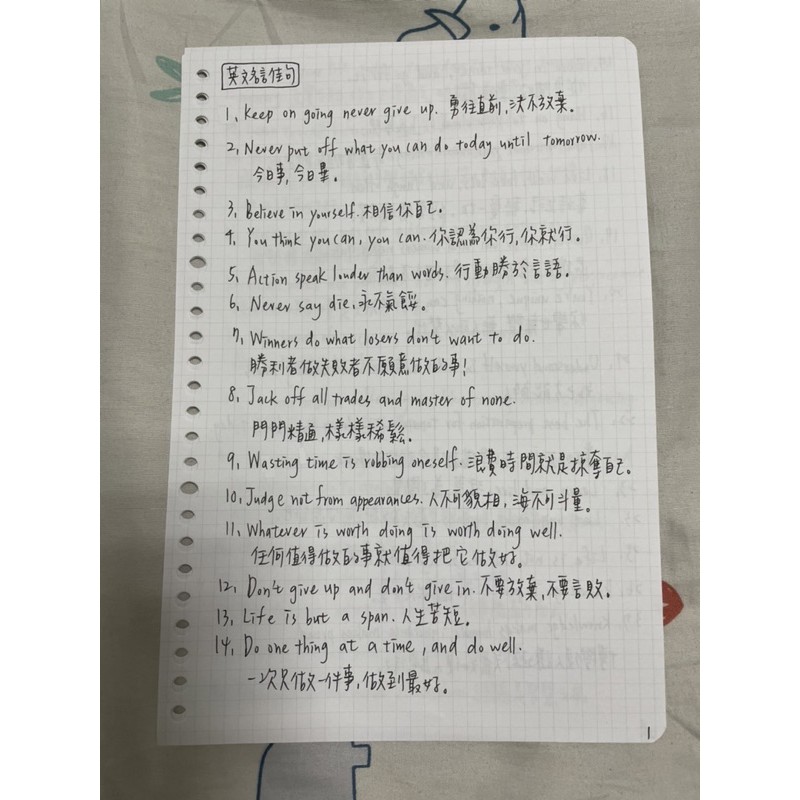 英文名言佳句
1, Keep on going never give up. 勇往直前,決不放棄。
2, Never put off what you can do today until tomorrow.
今日事,今日畢。
3, Believe in yourself. 相信你自己。
4, You think you can, you can. 你認為你行,你就行。
5, Action speak louder than words. 行動勝於言語。
6, Never say die. 永不氣餒。
7, Winners do what losers don't want to do.
勝利者做失敗者不願意做的事!
8, Jack off all trades and master of none.
門門精通,樣樣稀鬆。
9, Wasting time is robbing oneself. 浪費時間就是掠奪自己。
10, Judge not from appearances. 人不可貌相,海不可斗量。
11, Whatever is worth doing is worth doing well.
任何值得做的事就值得把它做好。
12, Don't give up and don't give in. 不要放棄,不要言敗。
13, Life is but a span. 人生苦短。
14, Do one thing at a time, and do well.
一次只做一件事,做到最好。
1